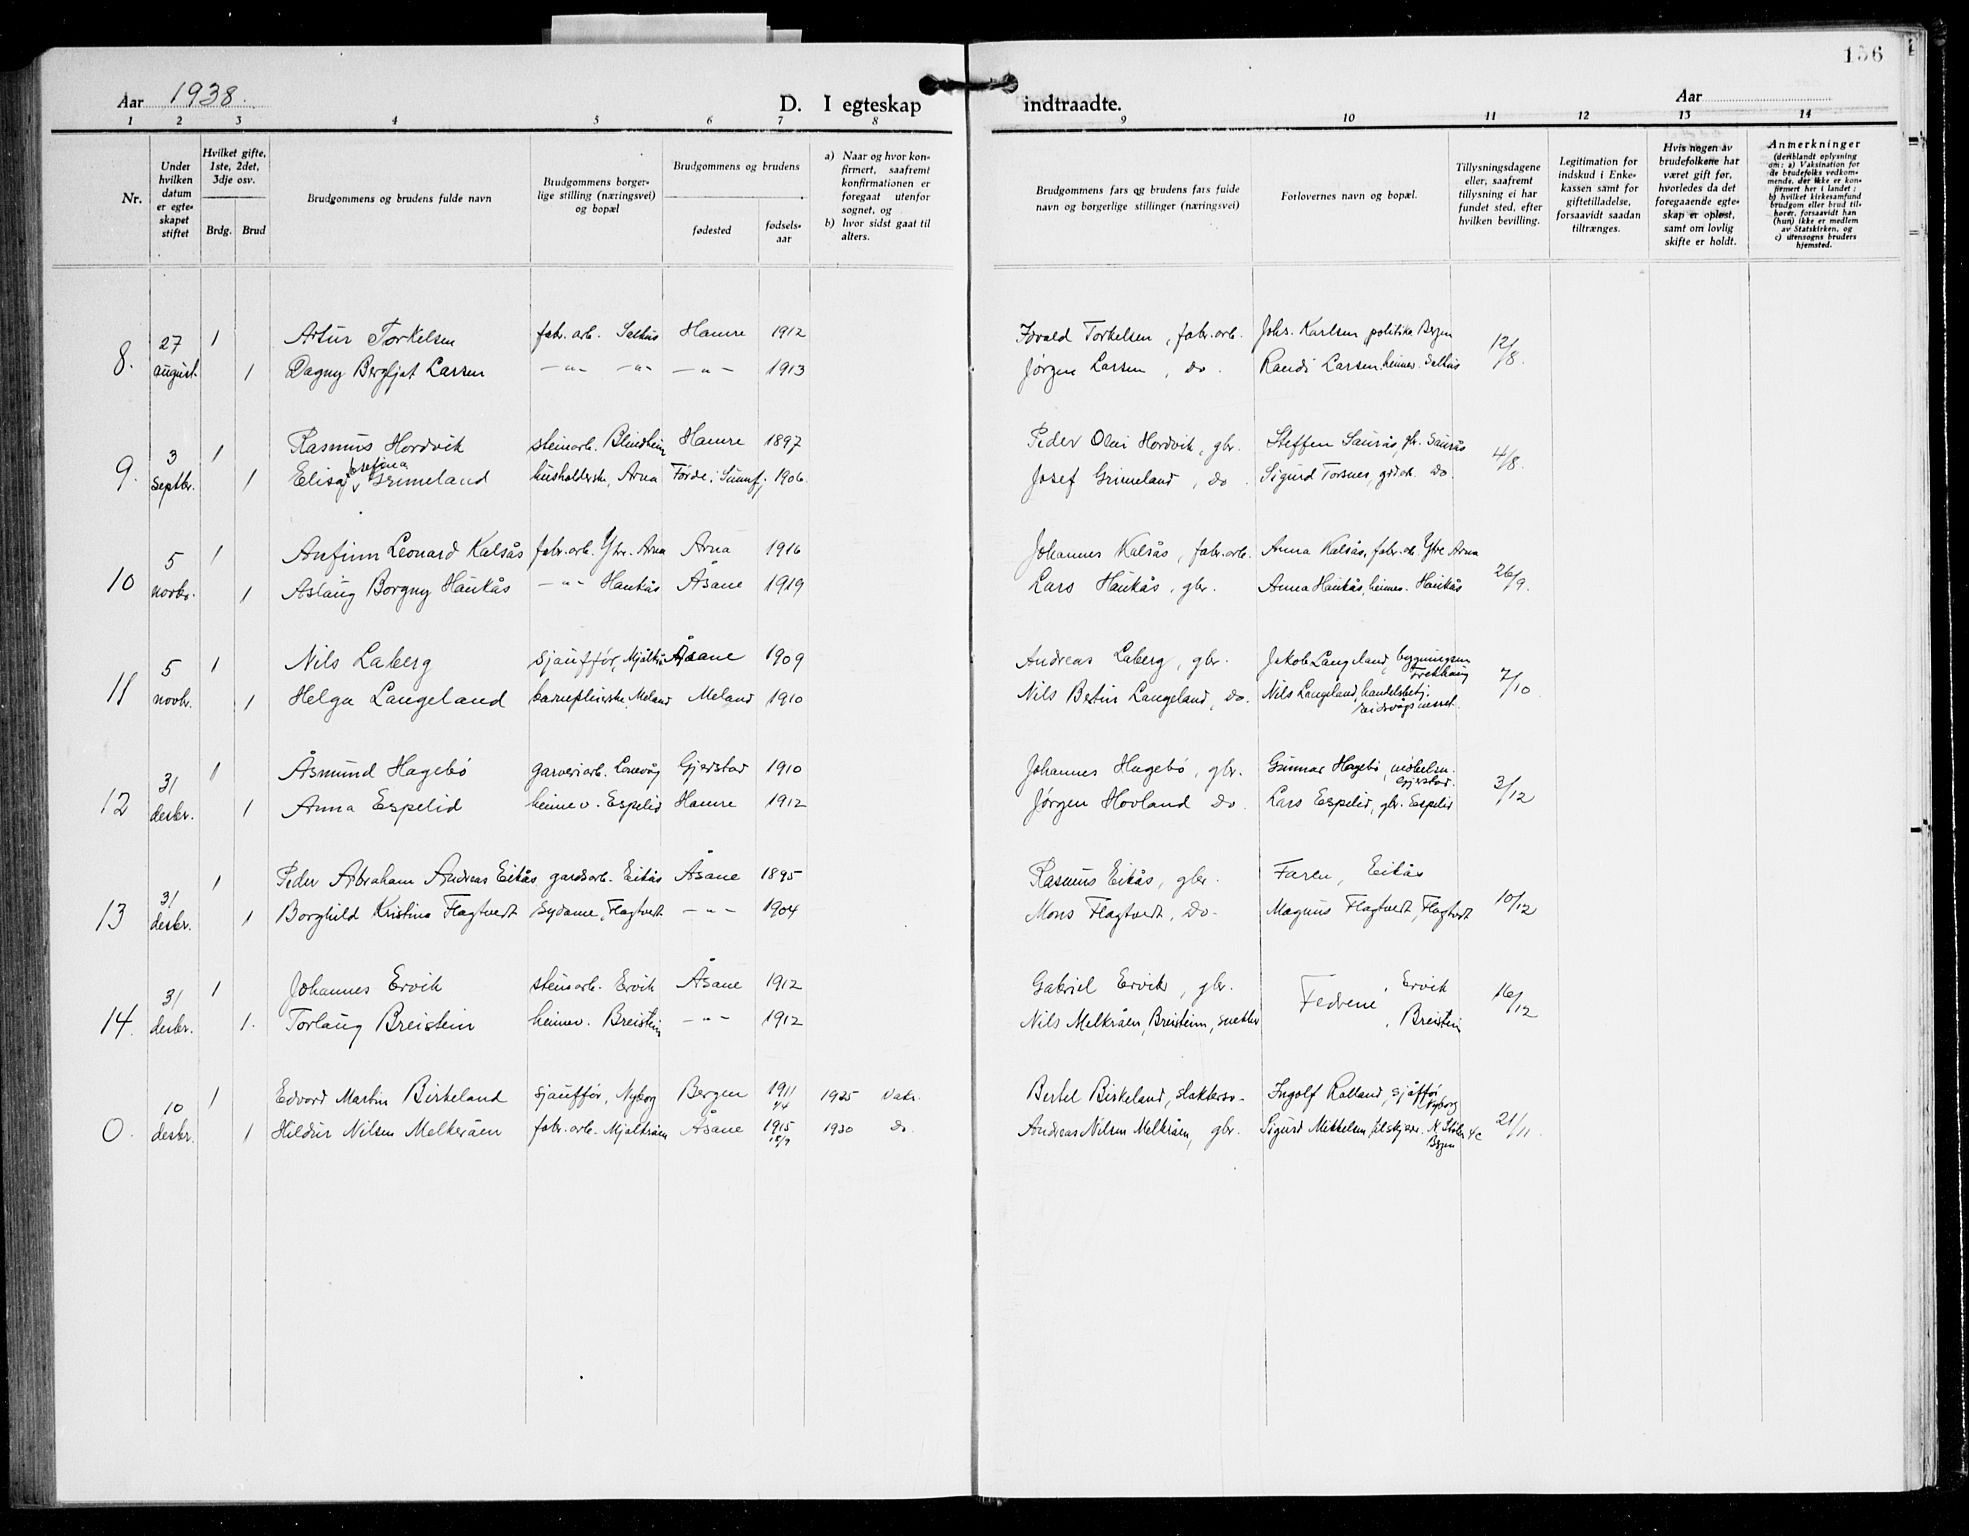 156
Aar 1938.
D. I egteskap indtraadte.
Aar
1 2 3 4 5 6 7 8 9 10 11 12 13 14
Nr.
Under hvilken datum er egte-skapet stiftet
Hvilket gifte, 1ste, 2det, 3dje osv.
Brdg. Brud
Brudgommens og brudens fulde navn
Brudgommens borger-lige stilling (næringsvei) og bopæl
Brudgommens og brudens
fødested
fødsels-aar
a) Naar og hvor kon-firmert, saafremt konfirmationen er foregaat utenfor sognet, og
b) hvor sidst gaat til alters.
Brudgommens fars og brudens fars fulde navn og borgerlige stillinger (næringsvei)
Forlovernes navn og bopæl.
Tillysningsdagene eller, saafremt tillysning ei har fundet sted, efter hvilken bevilling.
Legitimation for indskud i Enke-kassen samt for giftetilladelse, forsaavidt saadan tiltrænges.
Hvis nogen av brudefolkene har været gift før, hvorledes da det foregaaende egte-skap er opløst, samt om lovlig skifte er holdt.
Anmerkninger
(deriblandt oplysning om: a) Vaksination for de brudefolks vedkom-mende, der ikke er kon-firmert her i landet; b) hvilket kirkesamfund brudgom eller brud til-hører, forsaavidt han (hun) ikke er medlem av Statskirken, og c) utensogns bruders hjemsted.
8. 27 august. 1 Artur Torkelsen fabr. arb. Salhus Hamre 1912 Torkelsen, fabr. arb. Johs. Karlsen, politik. Bergen 12/8.
1 Dagny Bergljot Larsen -"- -"- -"- 1913 Jørgen Larsen, do. Randi Larsen heimev. Salhus
9. 3 septbr. 1 Rasmus Hordvik steinarb. Blindheim Hamre 1897 Peder Olai Hordvik, gbr. Steffen Saurås, gbr. Saurås 4/8.
1 Elisa Josefina Grimeland husholderske, Arna Førde i Sunnfj. 1906 Josef Grimeland, do. Sigurd Torsnes, do.
10 5 novbr. 1 Anfinn Leonard Kalsås fabr. arb. Ytr. Arna Arna 1916 Johannes Kalsås, fabr. arb. Anna Kalsås, fabr. arb Ytre Arna 26/9.
1 Aslaug Borgny Haukås -"- Haukås Åsane 1919 Lars Haukås, gbr. Anna Haukås, heimev. Haukås
11 5 novbr. 1 Nils Laberg sjauffør, Mjølkeråen Åsane 1909 Andreas Laberg, gbr. Jakob Langeland, bygningsm. 7/10
1 Helga Langeland barnepleierske, Meland Meland 1910 Nils Bertin Langeland, do. Nils Langeland, handelsbetj. Eidsvågsnesset
12 31 desbr. 1 Åsmund Hagebø garveriarb. Lonevåg Gjerstad 1910 Johannes Hagebø, gbr. Gunnar Hagebø, møbelsn. Gjerstad. 3/12
1 Anna Espelid heimev. Espelid Hamre 1912 Jørgen Hovland do. Lars Espelid, gbr. Espelid
13 31 desbr. 1 Peder Abraham Andreas Eikås gardsarb. Eikås Åsane 1895 Rasmus Eikås, gbr. Faren, Eikås 10/12
1 Borghild Kristina Flagtvedt sydame, Flagtvedt -"- 1904 Mons Flagtvedt, do. Magnus Flagtvedt, Flagtvedt
14. 31 desbr. 1 Johannes Ervik steinarb. Ervik Åsane 1912 Gabriel Ervik, gbr. Fedrene, Ervik 16/12
1. Torlaug Breistein heimev. Breistein -"- 1912 Nils Melkråen, Breistein, snekker , Breistein
0. 10 desbr. 1 Edvard Martin Birkeland sjauffør, Nyborg Bergen 1911 4/4 1925 Vaks. Bertel Birkeland, slakterso- Ingolf Rolland, sjåffør Nyborg 21/11.
1 Hildur Nilsen Melkeråen fabr. arb. Mjølkråen Åsane 1915 18/9 1930 do. Andreas Nilsen Melkråen, gbr. Sigurd Mikkelsen, Bergen